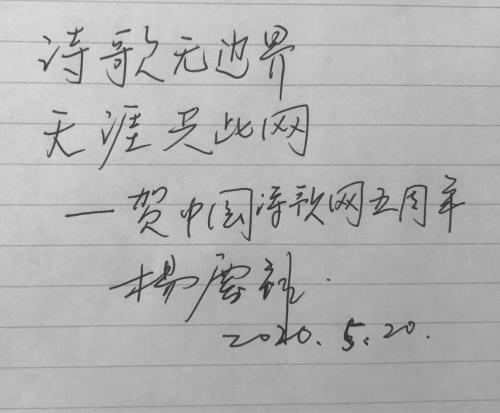 诗歌无边界
天涯只此网
—贺中国诗歌网五周年
杨
2020.5.20.